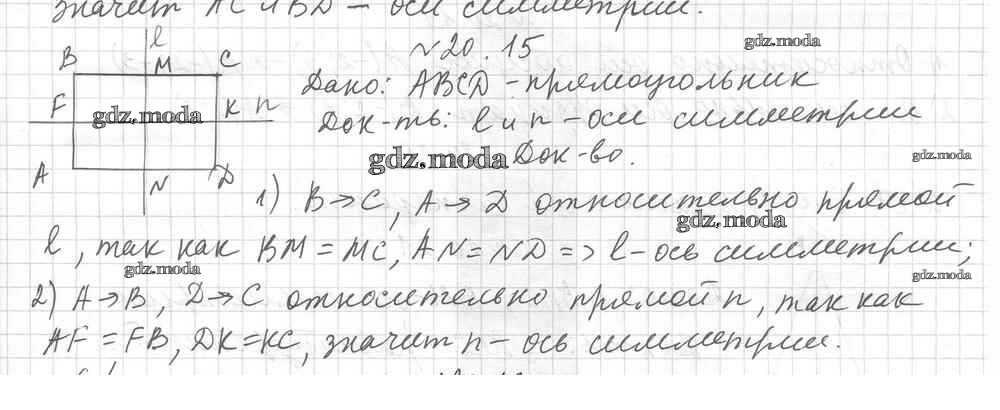 значит AC и BD – оси симметрии.
№20.15
gdz.moda
l
B M C
Дано: ABCD – прямоугольник
F K n
gdz.moda
Док-ть: l и n – оси симметрии
gdz.moda
Док-во.
gdz.moda
A N D
1) B→C, A→D относительно прямой
gdz.moda
l, так как BM = MC, AN = ND => l – ось симметрии;
gdz.moda
gdz.moda
2) A→B, D→C относительно прямой n, так как
AF = FB, DK = KC, значит n – ось симметрии.